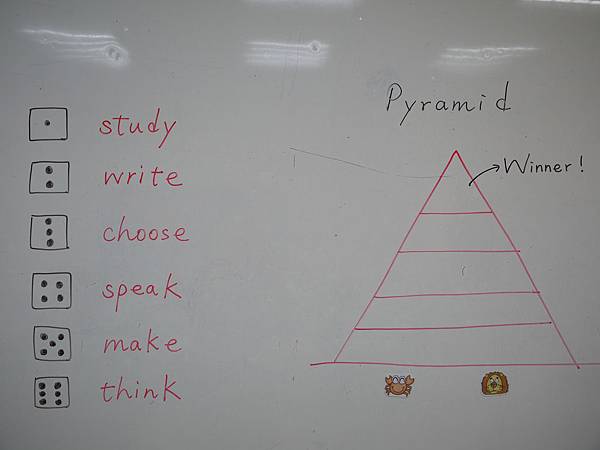 study
write
choose
speak
make
think
Pyramid
Winner!